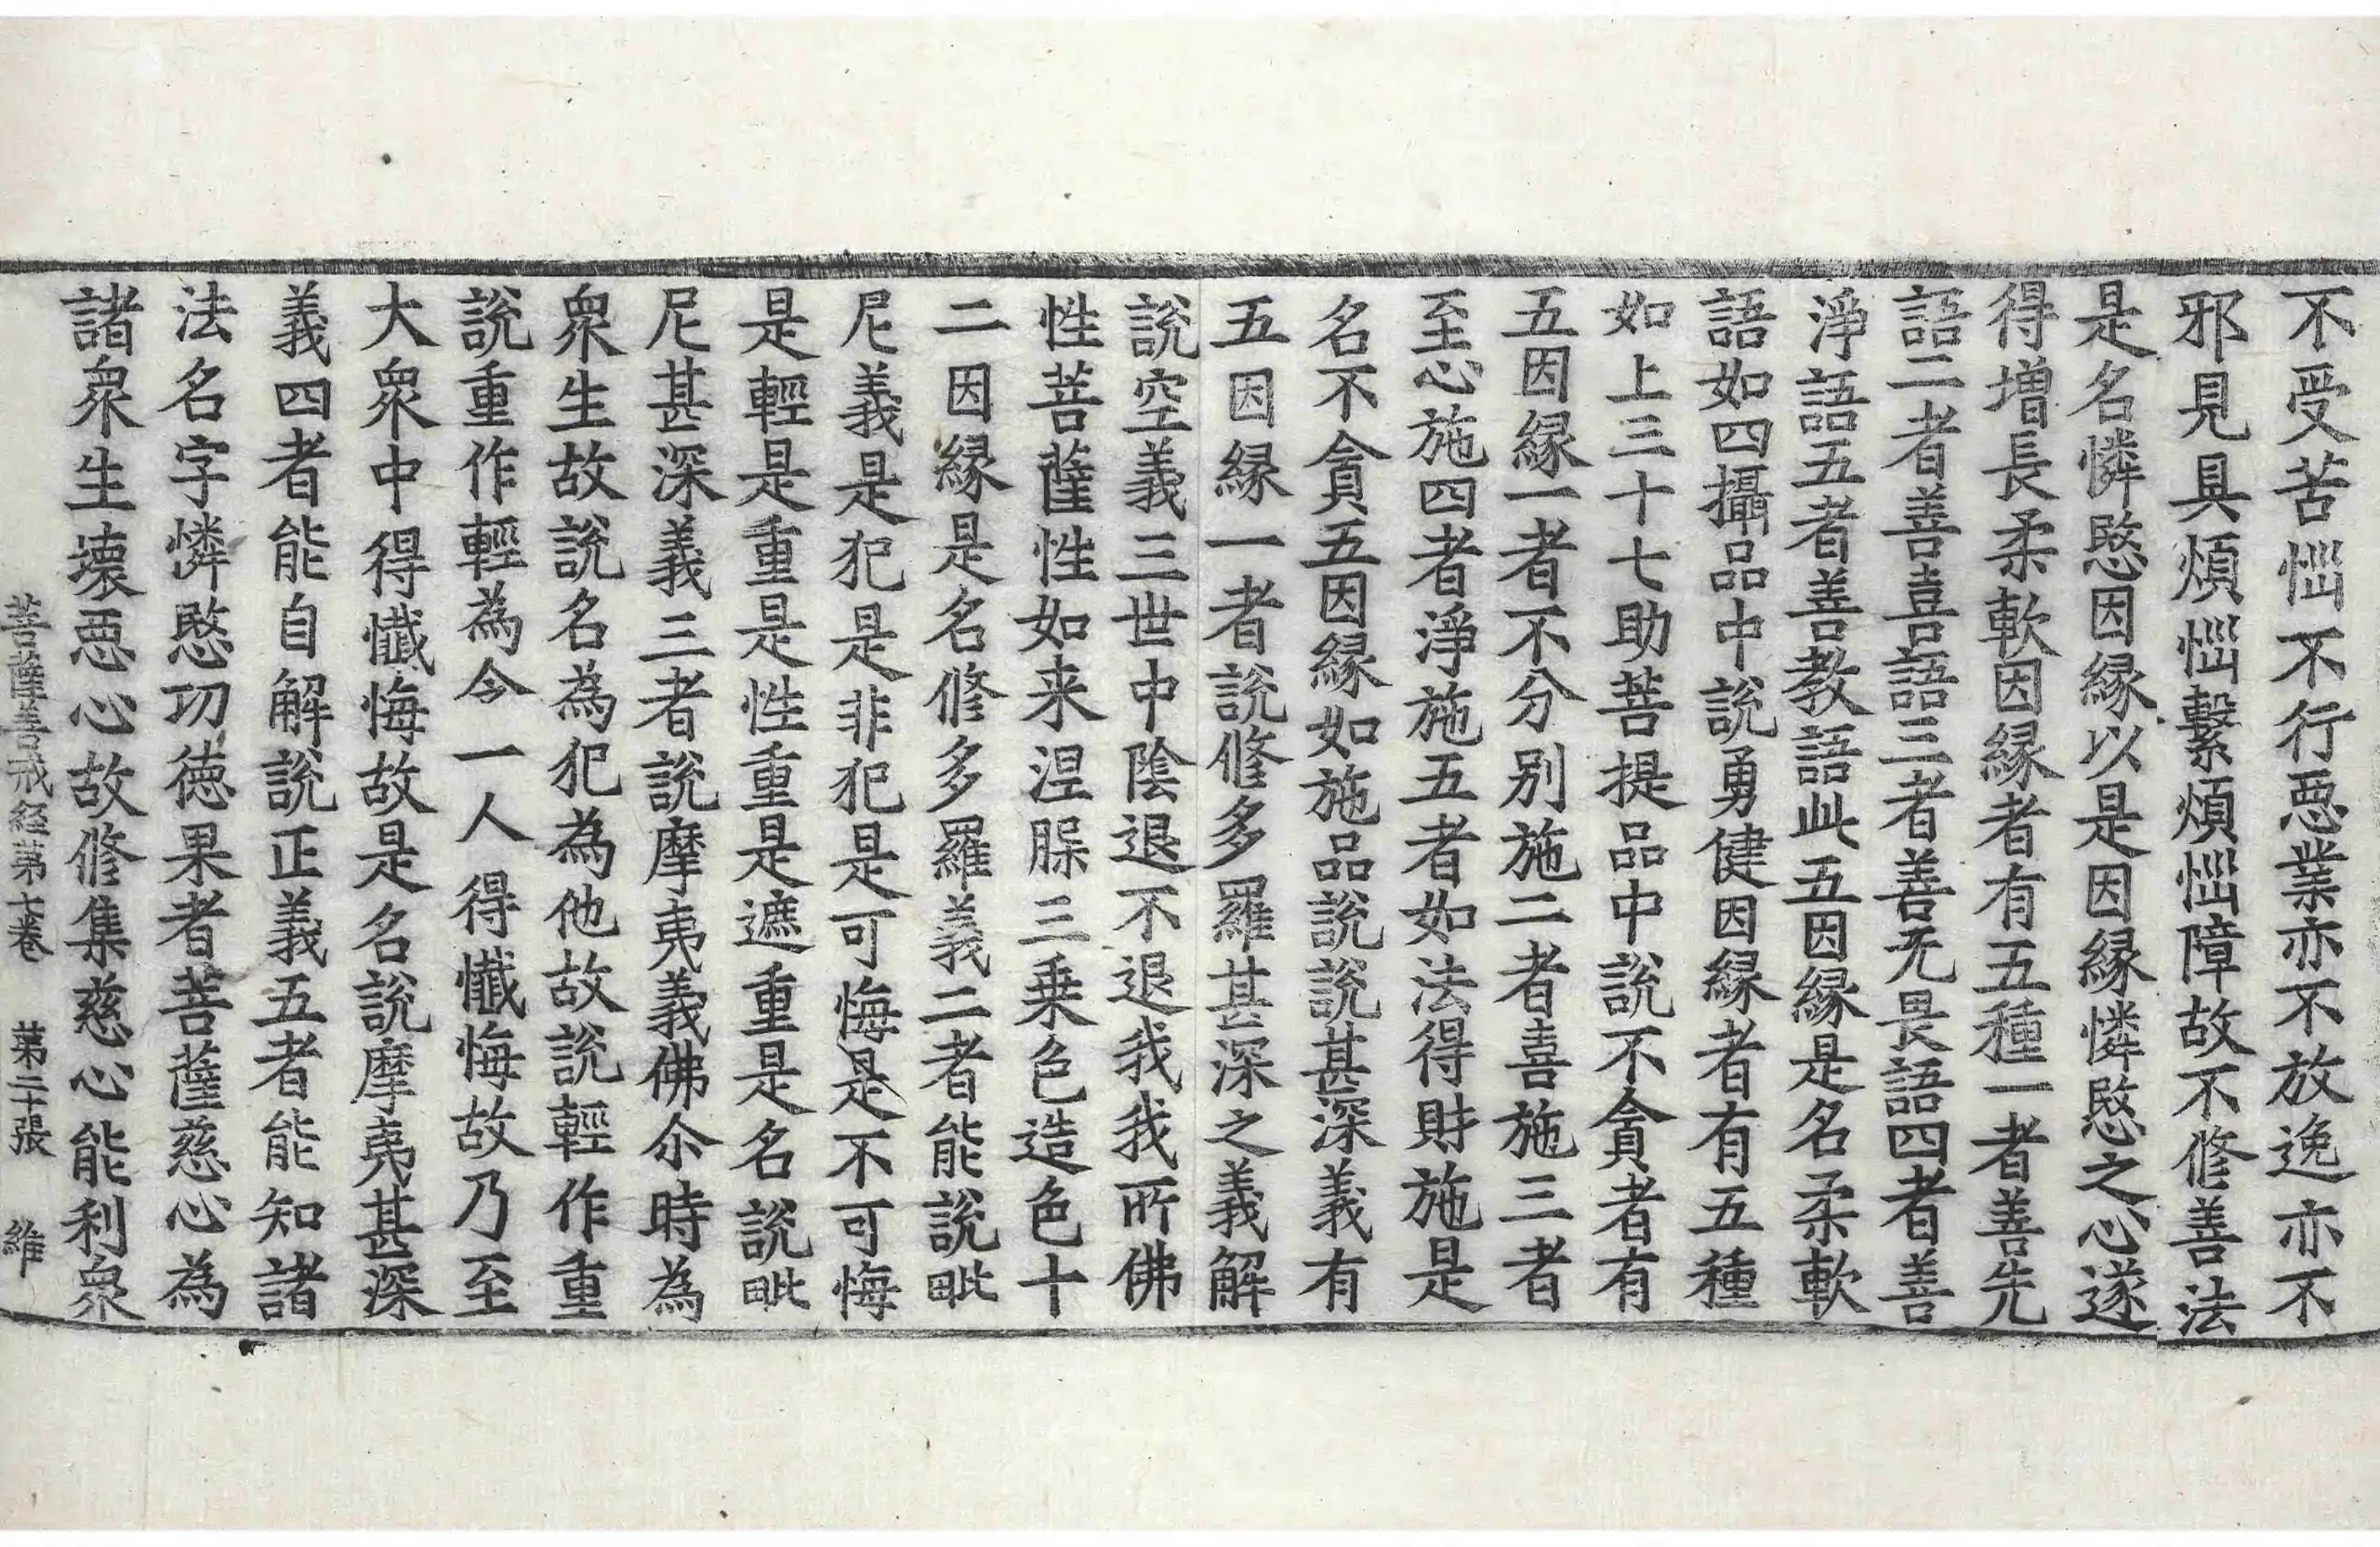 不受苦惱不行惡業亦不放逸亦不
邪見具煩惱繫煩惱障故不修善法
是名憐愍因縁以是因縁憐愍之心遂
得増長柔軟因縁者有五種一者善先
語二者善喜語三者善无畏語四者善
淨語五者善教語此五因縁是名柔軟
語如四攝品中說勇健因縁者有五種
如上三十七助菩提品中說不貪者有
五因縁一者不分別施二者喜施三者
至心施四者淨施五者如法得財施是
名不貪五因縁如施品說說甚深義有
五因縁一者說修多羅甚深之義解
說空義三世中陰退不退我我所佛
性菩薩性性如来涅脲三乗色造色十
二因縁是名修多羅義二者能說毗
尼義是犯是非犯是可悔是不可悔
是輕是重是性重是遮重是名說毗
尼甚深義三者說摩夷義佛尒時為
衆生故說名為犯為他故說輕作重
說重作輕為令一人得懺悔故乃至
大衆中得懺悔故是名說摩夷甚深
義四者能自解說正義五者能知諸
法名字憐愍功徳果者菩薩慈心為
諸衆生壞惡心故修集慈心能利衆
菩薩善戒経苐七巻　苐二十張　維